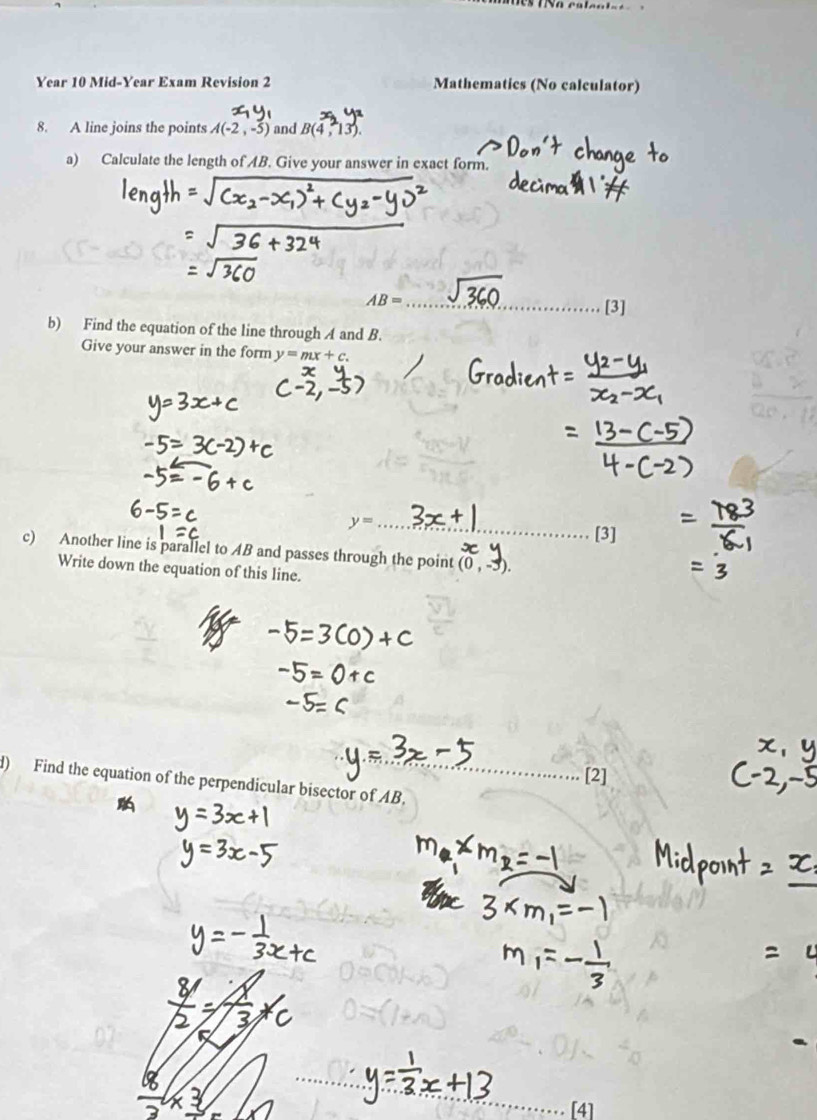 Year 10 Mid-Year Exam Revision 2 Mathematics (No calculator)
x₁ y₁ x₂ y₂
8. A line joins the points A(-2 , -5) and B(4 , 13).
a) Calculate the length of AB. Give your answer in exact form.
→Don't change to
decimal!
length = √(x₂-x₁)² + (y₂-y₁)²
= √36 + 324
= √360
AB = √360 [3]
b) Find the equation of the line through A and B.
Give your answer in the form y = mx + c.
x y
(-2, -5)
y=3x+c
-5= 3(-2)+c
-5= -6 + c
6-5=c
1 =c
Gradient = y₂-y₁ / x₂-x₁
= 13-(-5) / 4-(-2)
= 18 3 / 6 1
= 3
y = 3x+1 [3]
x y
c) Another line is parallel to AB and passes through the point (0 , -5).
Write down the equation of this line.
-5=3(0)+c
-5= 0+c
-5= c
y = 3x - 5 [2]
x, y
(-2,-5
d) Find the equation of the perpendicular bisector of AB.
y=3x+1
y=3x-5
y= -1/3x+c
m₁ × m₂ = -1
3×m₁ = -1
m₁ = -1/3
Midpoint = x
= 4
8/2 = 1/3 + c
y=1/3x+13 [4]